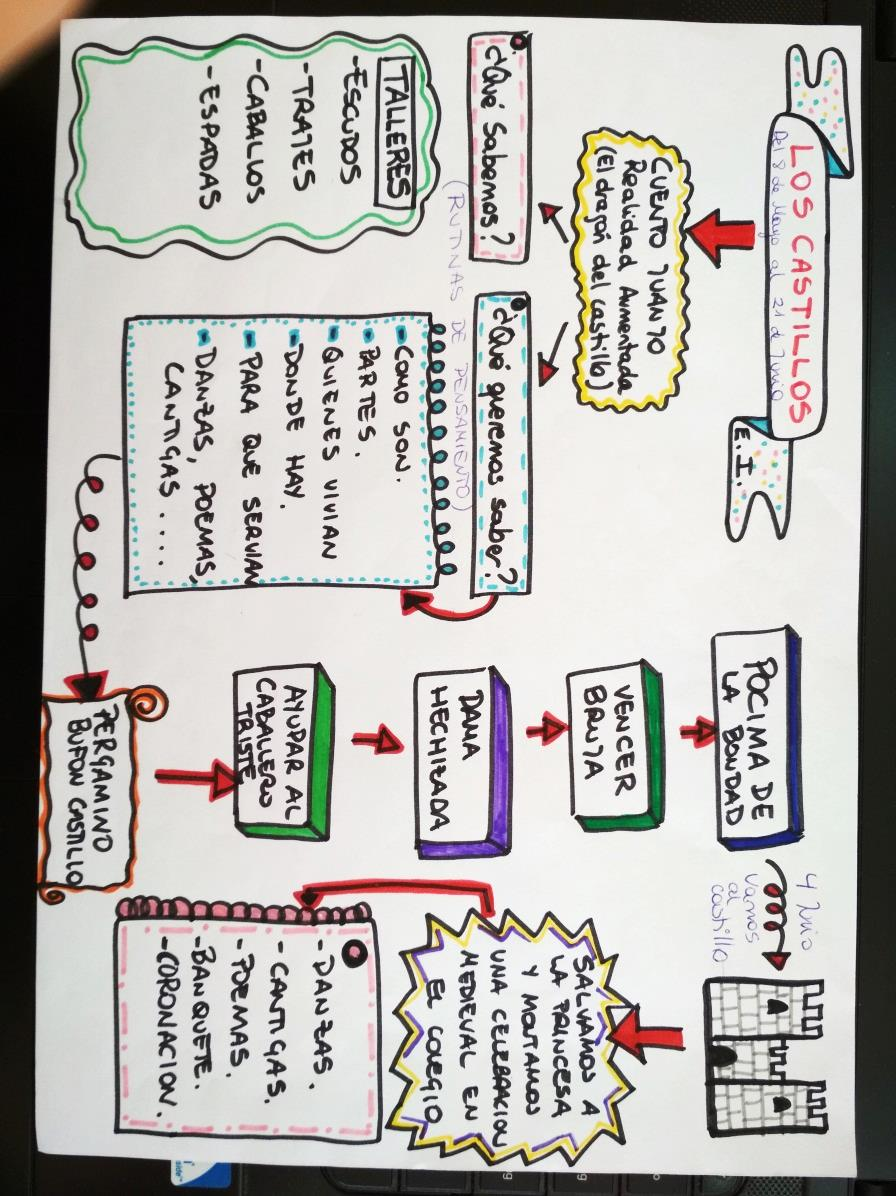 LOS CASTILLOS
Del 8 de Mayo al 21 de Junio
E.I.
CUENTO JUANJO
Realidad Aumentada
(El dragón del castillo)
¿Qué Sabemos?
¿Qué queremos saber?
(RUTINAS DE PENSAMIENTO)
TALLERES
-ESCUDOS
-TRAJES
-CABALLOS
-ESPADAS
- COMO SON.
- PARTES.
- QUIENES VIVIAN
- DONDE HAY.
- PARA QUE SERVIAN
- DANZAS, POEMAS,
CANTIGAS....
PERGAMINO
BUFON CASTILLO
AYUDAR AL
CABALLERO
TRISTE
DAMA
HECHIZADA
VENCER
BRUJA
POCIMA DE
LA BONDAD
4 Junio
Vamos
al
castillo
SALVAMOS A
LA PRINCESA
Y MONTAMOS
UNA CELEBRACION
MEDIEVAL EN
EL COLEGIO
- DANZAS.
- CANTIGAS.
- POEMAS.
- BANQUETE.
- CORONACION.